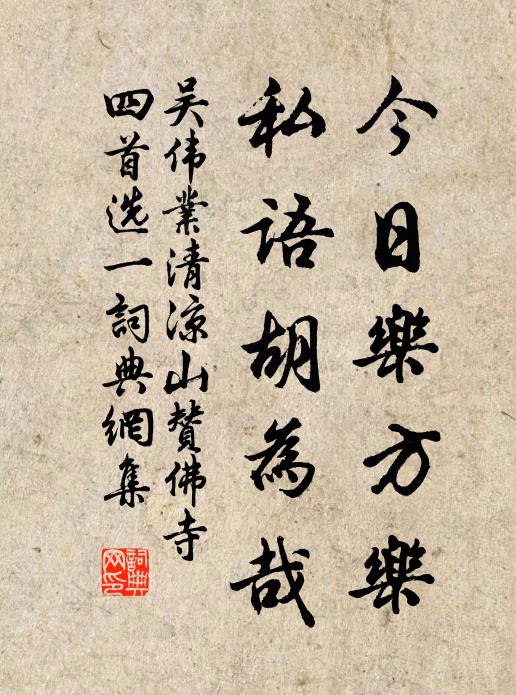 今日樂方樂
私語胡為哉
吴伟業清凉山贊佛寺
四首选一詞典網集
詞典網印